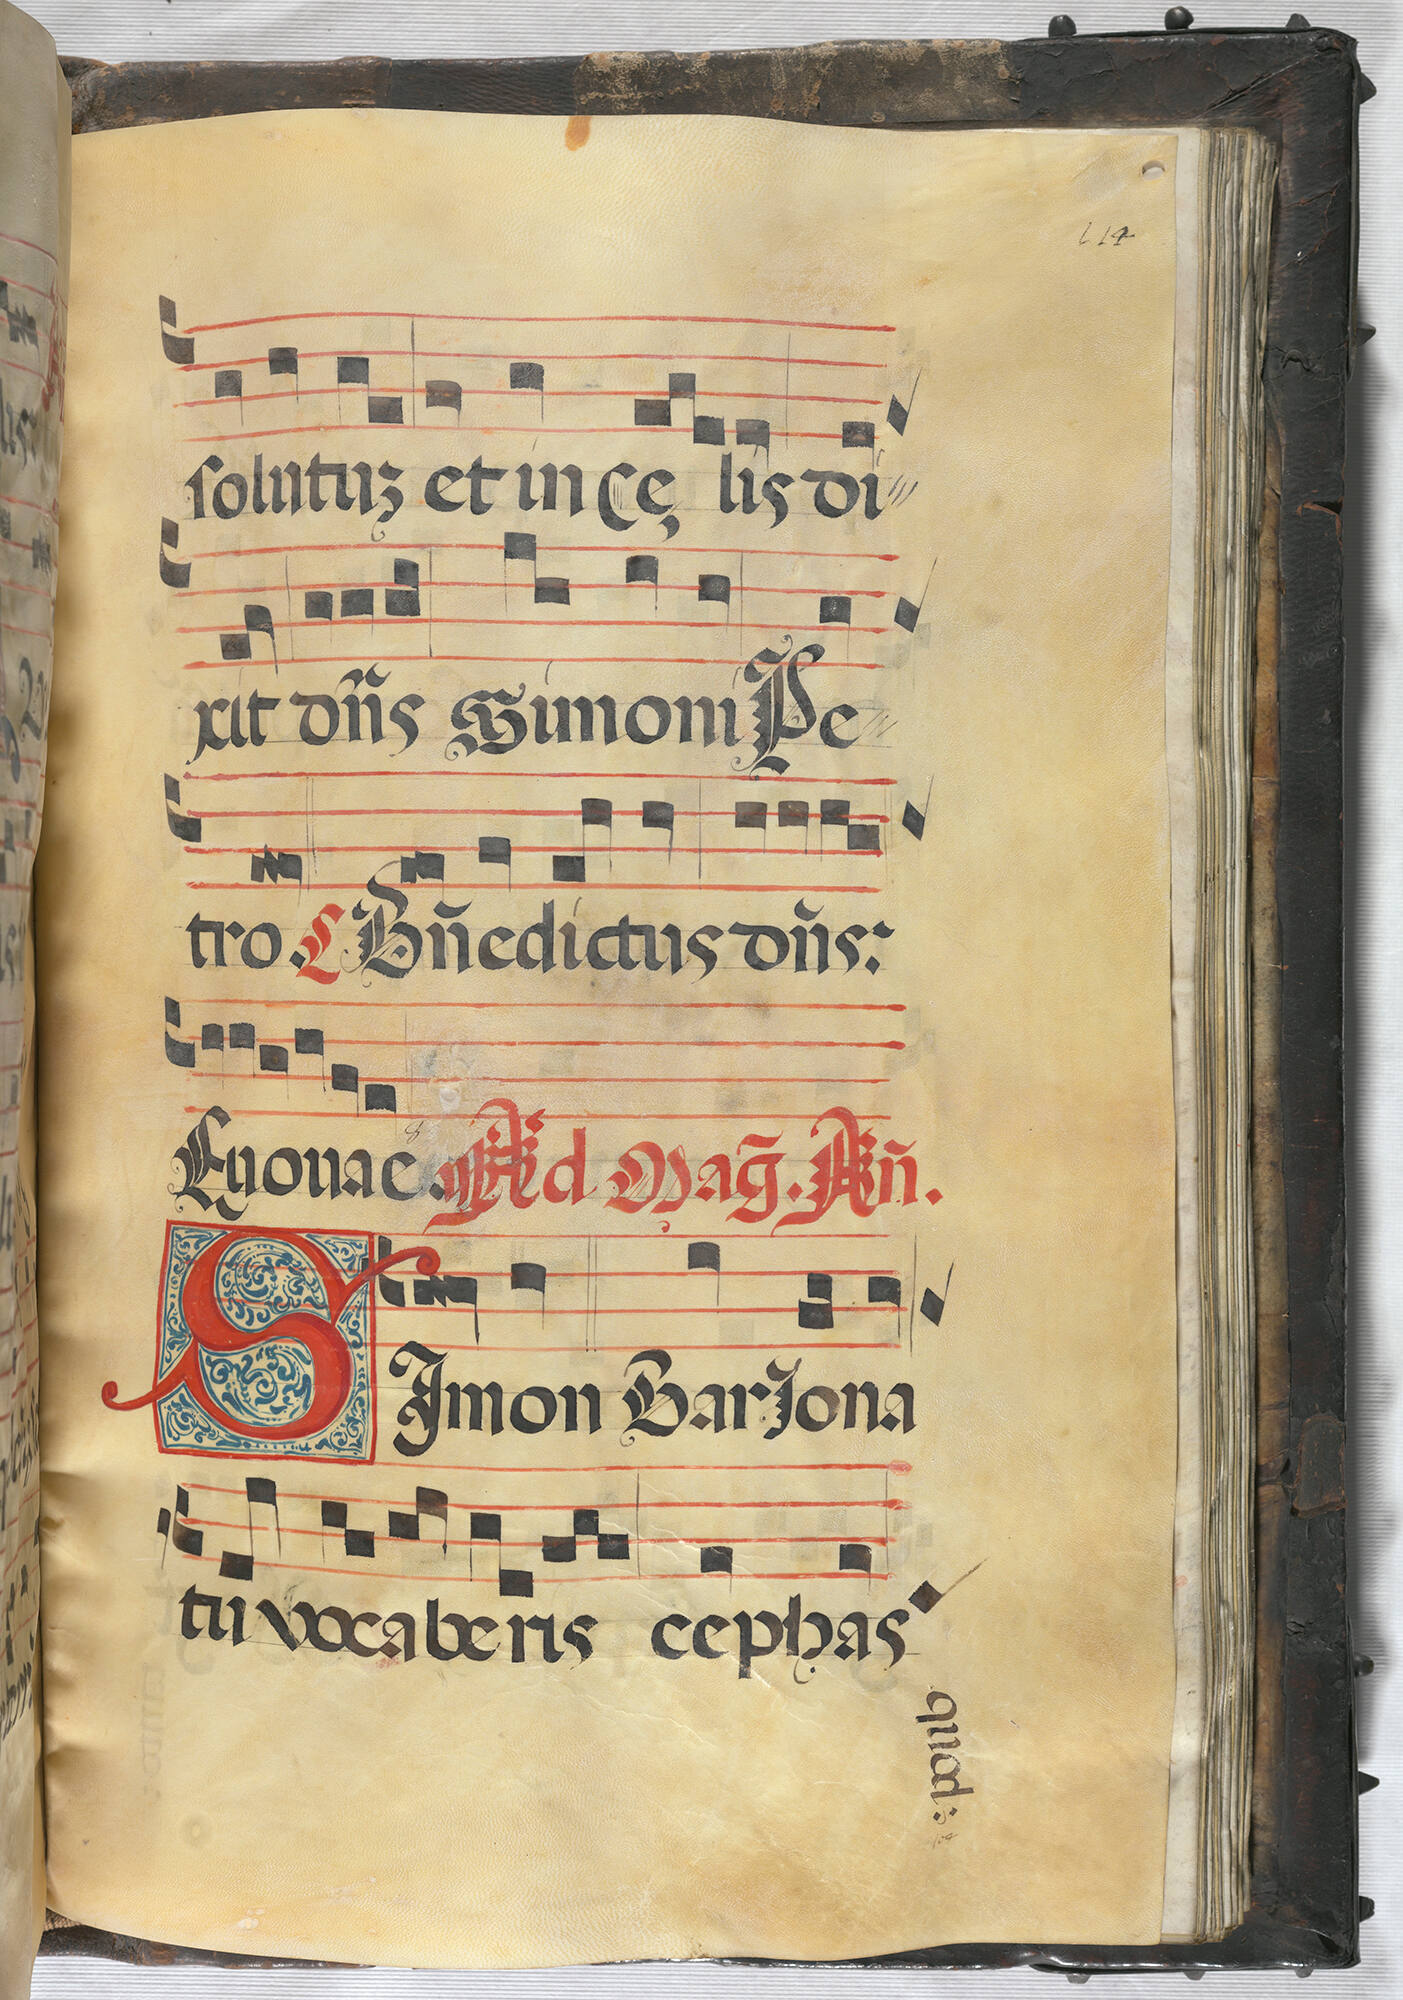 114
solutuʒ et in cę lis di
xit dn̄s Simoni Pe
tro. Bn̄edictus dn̄s:
Euouae. Ad Mag̃. Añ.
SImon BarIona
tu vocaberis cephas
quod: